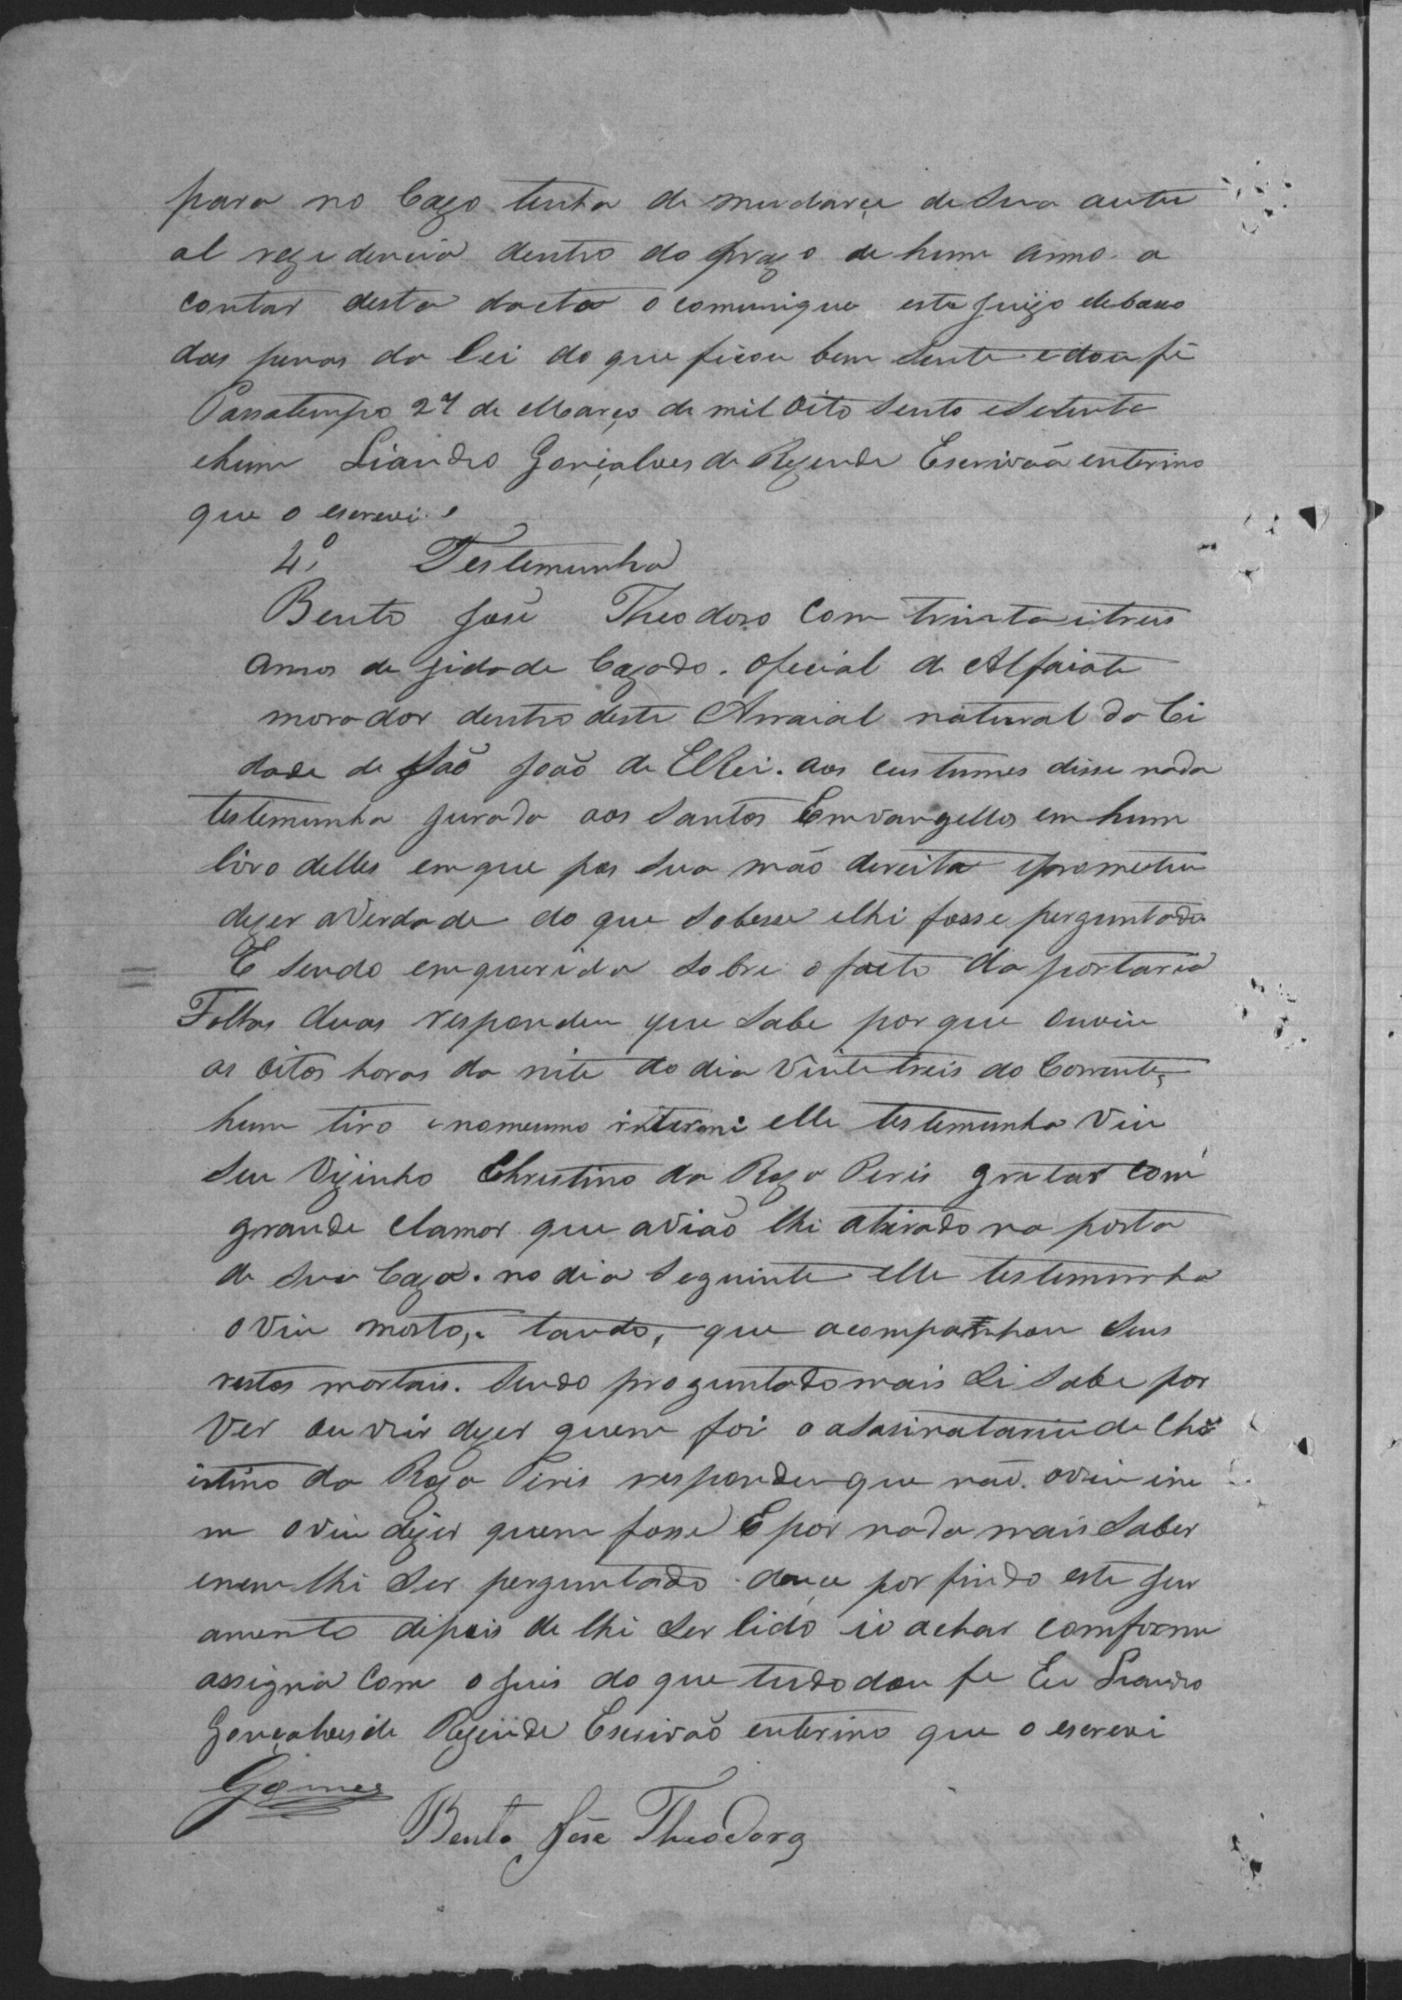 para no Cazo tenha de mudarça de sua autu
al rezidencia dentro do prazo de hum anno a
contar desta dacta o comunique este juizo debaxo
das penas da lei do que ficou bem sente e dou fé
Passatempo 27 de Março de mil oito sento e setenta
ehum Liandro Gonçalves de Rezende Escrivão enterino
que o escrevi.
4º. Testemunha
Bento José Theodoro com trinta itreis
annos de jidade Cazado. oficial de Alfaiate
morador dentro deste Arraial natural da Ci
dade de São João de ElRei. aos custumes disse nada
testemunha jurada aos Santos Emvangellos em hum
livro delles em que pos sua mão dereita eprometeu
dizer averdade do que sobesse elhi fosse perguntado
E sendo emquerida sobre o facto da portaria
Folhas duas respondeu que sabe por que ouviu
as oitos horas da nite do dia vinte treis do Corrente,
hum tiro enomesmo elle testemunha viu
seu vizinho Christino da Roza Peris gritar com
grande clamor que avião lhi atirado na porta
de sua Caza. no dia seguinte elle testemunha
oviu morto, tando, que acompanhou seus
restos mortais. sendo proguntado mais si sabe por
ver ou vir dizer quem foi o de Chr
istino da Roza Piris respondeu que não. oviu ine
m oviu dizer quem fosse E por nada mais saber
enem lhi ser perguntado douçe por findo este jur
amento dipois de lhi ser lido io achar comforme
assigna com o juis do que tudo dou fe Eu Liandro
Gonçalves de Rezende Escrivão enterino que o escrevi
Gomes
Bento José Theodoro